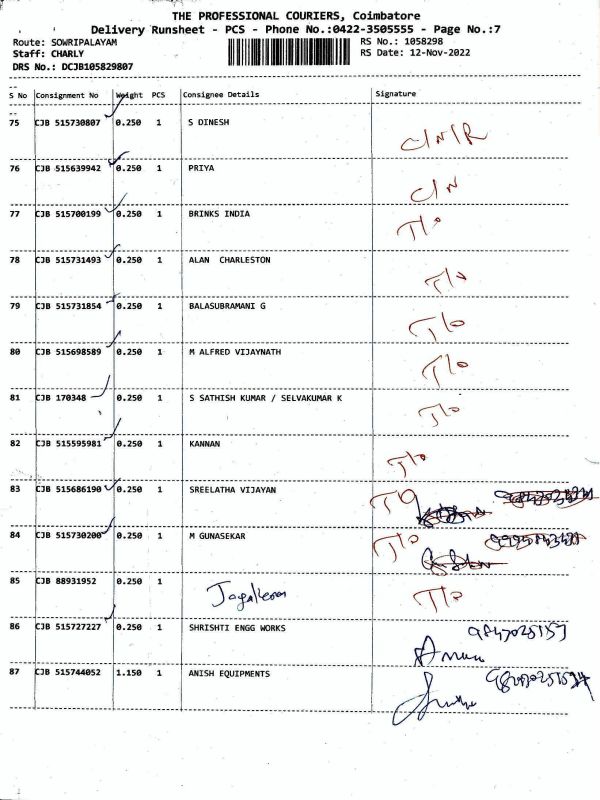 THE PROFESSIONAL COURIERS, Coimbatore
Delivery Runsheet - PCS - Phone No.:0422-3505555 - Page No.:7
Route: SOWRIPALAYAM RS No.: 1058298
Staff: CHARLY RS Date: 12-Nov-2022
DRS No.: DCJB105829807
S No Consignment No Weight PCS Consignee Details Signature
75 CJB 515730807 0.250 1 S DINESH C/N/R
76 CJB 515639942 0.250 1 PRIYA C/N
77 CJB 515700199 0.250 1 BRINKS INDIA T/o
78 CJB 515731493 0.250 1 ALAN CHARLESTON T/o
79 CJB 515731854 0.250 1 BALASUBRAMANI G T/o
80 CJB 515698589 0.250 1 M ALFRED VIJAYNATH T/o
81 CJB 170348 0.250 1 S SATHISH KUMAR / SELVAKUMAR K T/o
82 CJB 515595981 0.250 1 KANNAN T/o
83 CJB 515686190 0.250 1 SREELATHA VIJAYAN T/o
84 CJB 515730200 0.250 1 M GUNASEKAR T/o
85 CJB 88931952 0.250 1 T/o
86 CJB 515727227 0.250 1 SHRISHTI ENGG WORKS
87 CJB 515744052 1.150 1 ANISH EQUIPMENTS